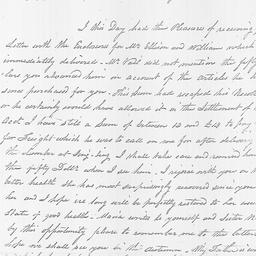 I this Day had the Pleasure of receiving
Letter with the Enclosure for Mr Ellison and William which
immediately delivered. Mr Vail did not mention the fifty
lars you advanced him in account of the articles he h
since purchased for you. This Sum had escaped his Recoll
or he certainly would have allowed it in the Settlement of
Acct. I have still a Sum of between 12 and £14 to pay
for Freight which he was to call on me for after delivery
the Lumber at Sing-Sing. I shall take care and remind him
this fifty Dollr when I see him. I rejoice with you on
better health She has most surprisingly recovered since you
her and I hope ere long will be perfectly restored to her us
State of good health - Maria writes to yourself and Sister
by this opportunity please to remember me to the latter
hope we shall see you in the Autumn - My Father is